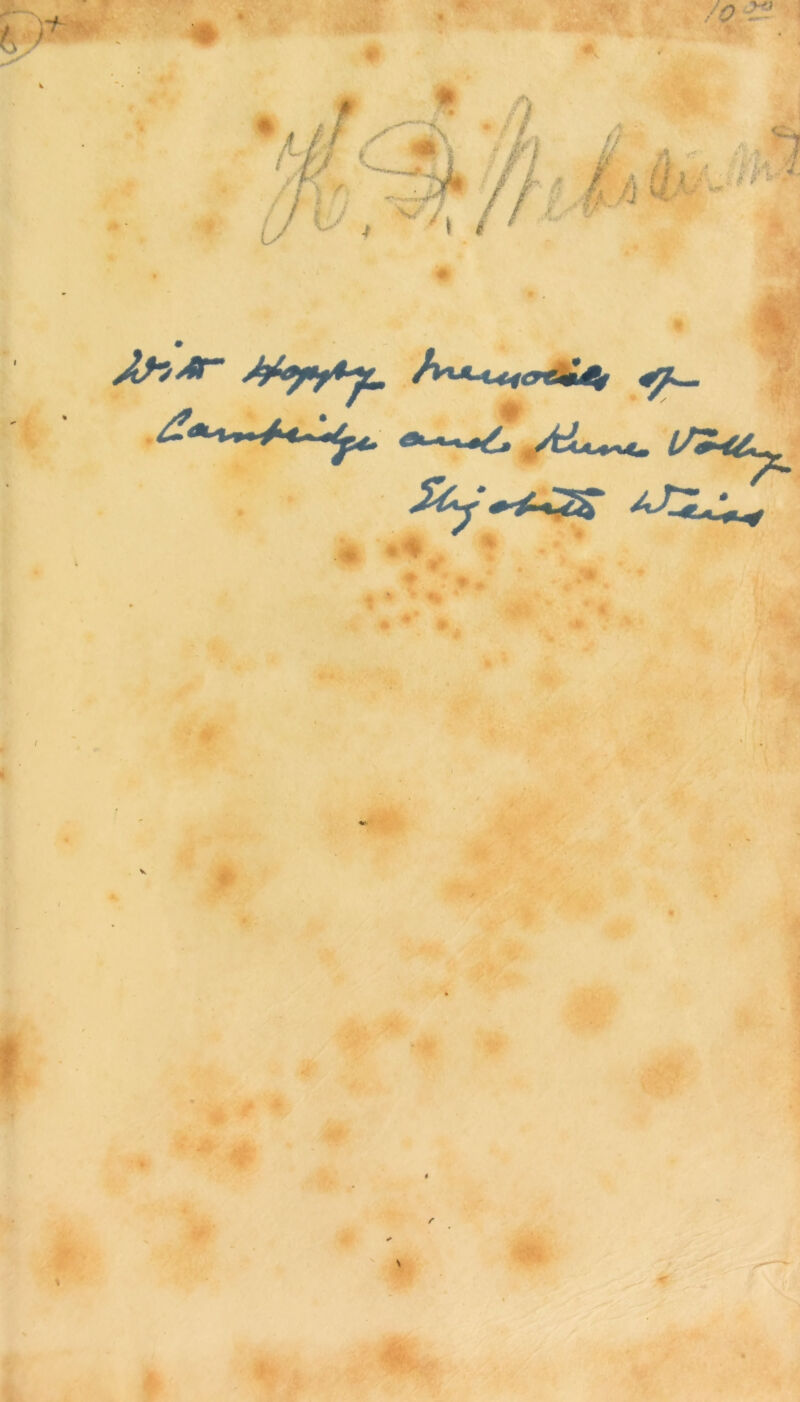 10 00
K. D. Webster MD
With Happy Memories of
Cambridge and Kune Valley
Elizabeth Weiss